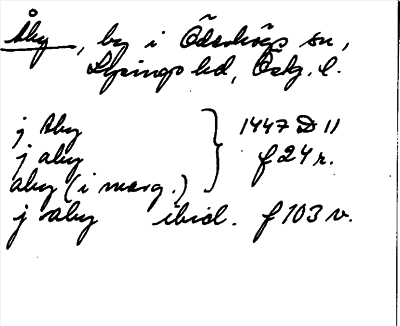 Åby, by i Ödeshögs sn,
Lysings hd, Östg. l.
j Aby } 1447 D 11
j aby } f 24 r.
aby (i marg.)
j Aby ibid. f 103 v.